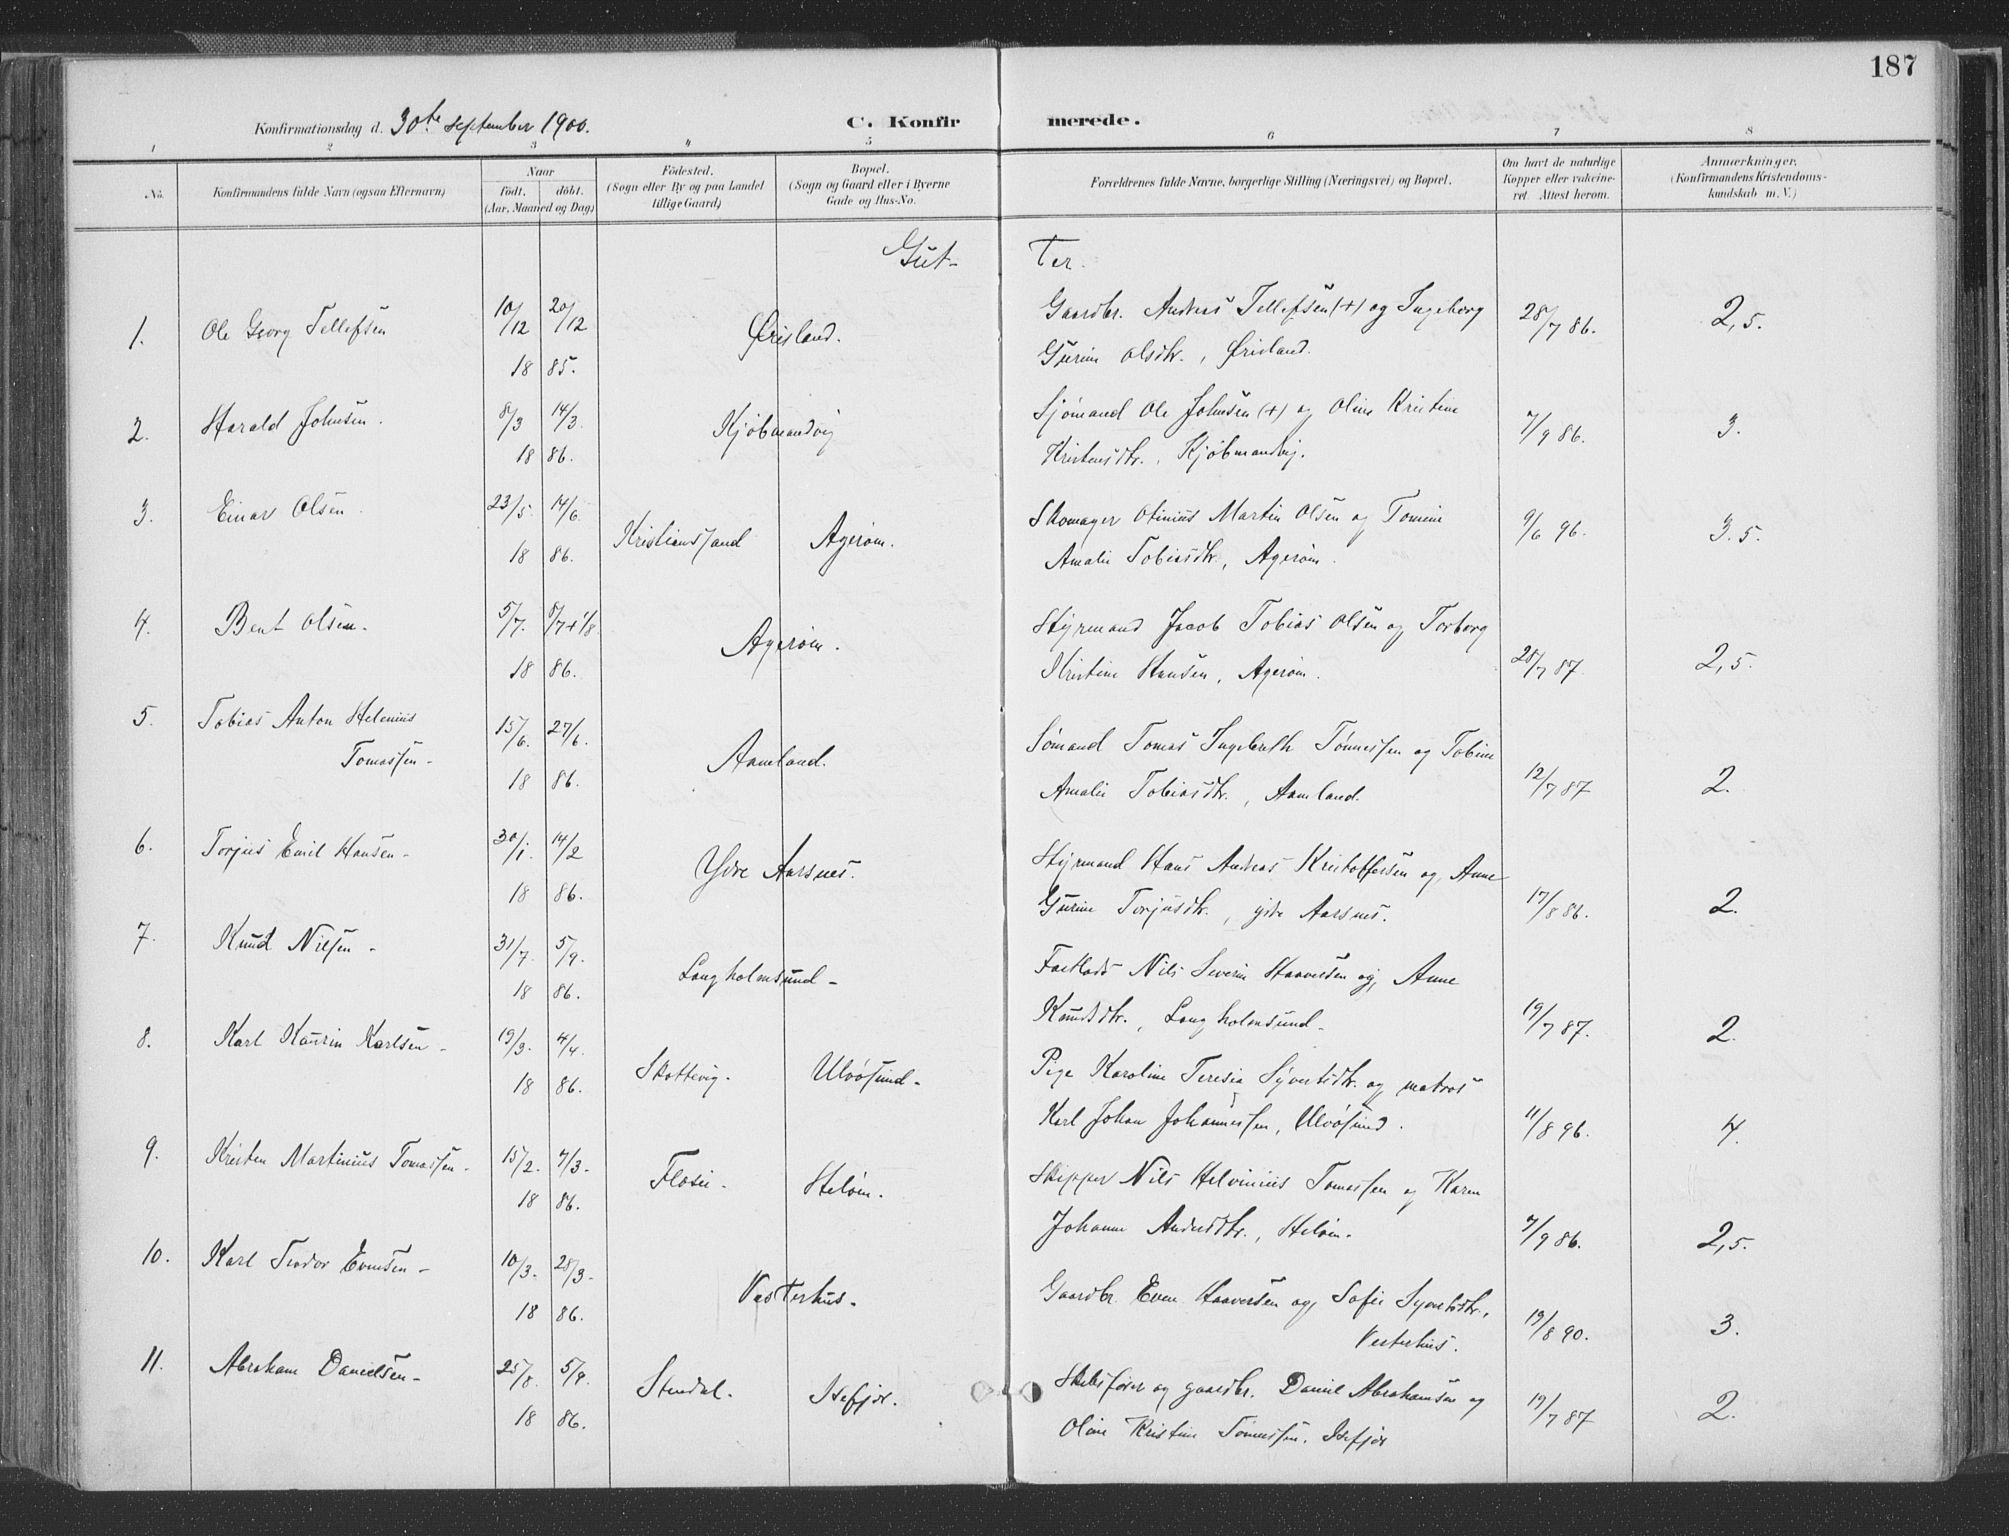 187
Konfirmationsdag d. 30te September 1900.
C. Konfirmerede.
1 2 3 4 5 6 7 8
No.
Konfirmandens fulde Navn (ogsaa Efternavn)
Naar
født. døbt.
(Aar, Maaned og Dag)
Fødested.
(Sogn eller By og paa Landet
tillige Gaard)
Bopæl.
(Sogn og Gaard eller i Byerne
Gade og Hus-No.
Forældrenes fulde Navne, borgerlige Stilling (Næringsvei) og Bopæl.
Om havt de naturlige
Kopper eller vakcine-
ret. Attest herom.
Anmærkninger.
(Konfirmandens Kristendoms-
kundskab m. V.)
Gut- ter.
1. Ole Georg Tellefsen 10/12 20/12 18 85. Ørisland. Gaardbr. Andreas Tellefsen (+) og Ingeborg
Gurine Olsdtr., Ørisland. 28/7 86. 2,5.
2. Harald Johnsen. 8/3 14/3. 18 86. Kjøbmandvig Sjømand Ole Johnsen (+) og Oline Kristine
Kristensdtr., Kjøbmandvig. 7/9 86. 3.
3. Einar Olsen. 23/5. 14/6. 18 86. Kristianssand Agerøen. Skomager Otinius Martin Olsen og Tomine
Amalie Tobiasdtr., Agerøen. 9/6 96. 3.5.
4. Bent Olsen. 5/7. 8/7 + 1/8 18 86. Agerøen. Styrmand Jacob Tobias Olsen og Torborg
Kristine Hansen, Agerøen. 28/7 87. 2,5.
5. Tobias Anton Helenius
Tomassen- 15/6. 27/6. 18 86. Aamland. Sømand Tomas Ingebreth Tønnessen og Tobine
Amalie Tobiasdtr., Aamland. 12/7 87 2.
6. Torjus Emil Hansen- 30/1. 14/2 18 86. Ydre Aarsnes. Styrmand Hans Andreas Kristoffersen og Anne
Gurine Torjusdtr., ydre Aarsnes. 17/8 86. 2.
7. Knud Nilsen- 31/7. 5/9. 18 86. Langholmsund- Nils Severin Haaversen og Anne
Knudsdtr., Langholmsund- 19/7 87. 2.
8. Karl Kaurin Karlsen- 19/3. 4/4. 18 86. Skottevig. Ulvøsund- Pige Karoline Teresia Syvertsdtr. og matros
Karl Johan Johannessen, Ulvøsund. 11/8 96. 4.
9. Kristen Martinius Tomassen- 15/2. 7/3- 18 86. Flosie. Heløen. Skipper Nils Helvinius Tomassen og Karen
Johanne Andersdtr., Heløen. 7/9 86. 2,5.
10. Karl Teodor Evensen- 10/3. 28/3- 18 86. Vesterhus- Gaardbr. Even Haaversen og Sofie Syvertsdtr.,
Vesterhus. 19/8 90. 3.
11. Abraham Danielsen- 25/8. 5/9. 18 86. Stendal. Isefjær. Skibsfører og gaardbr. Daniel Abrahamsen og
Oline Kristine Tønnessen, Isefjær 19/7 87 2.